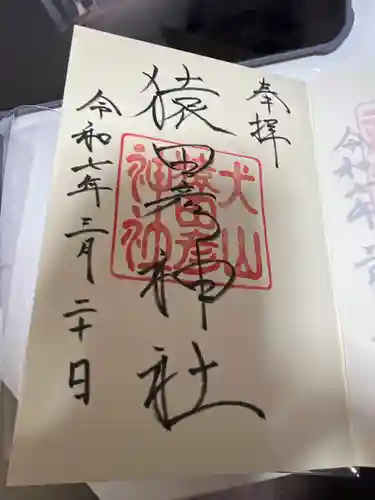 奉拝
猿田彦神社
犬山
猿田彦
神社
令和七年三月二十日